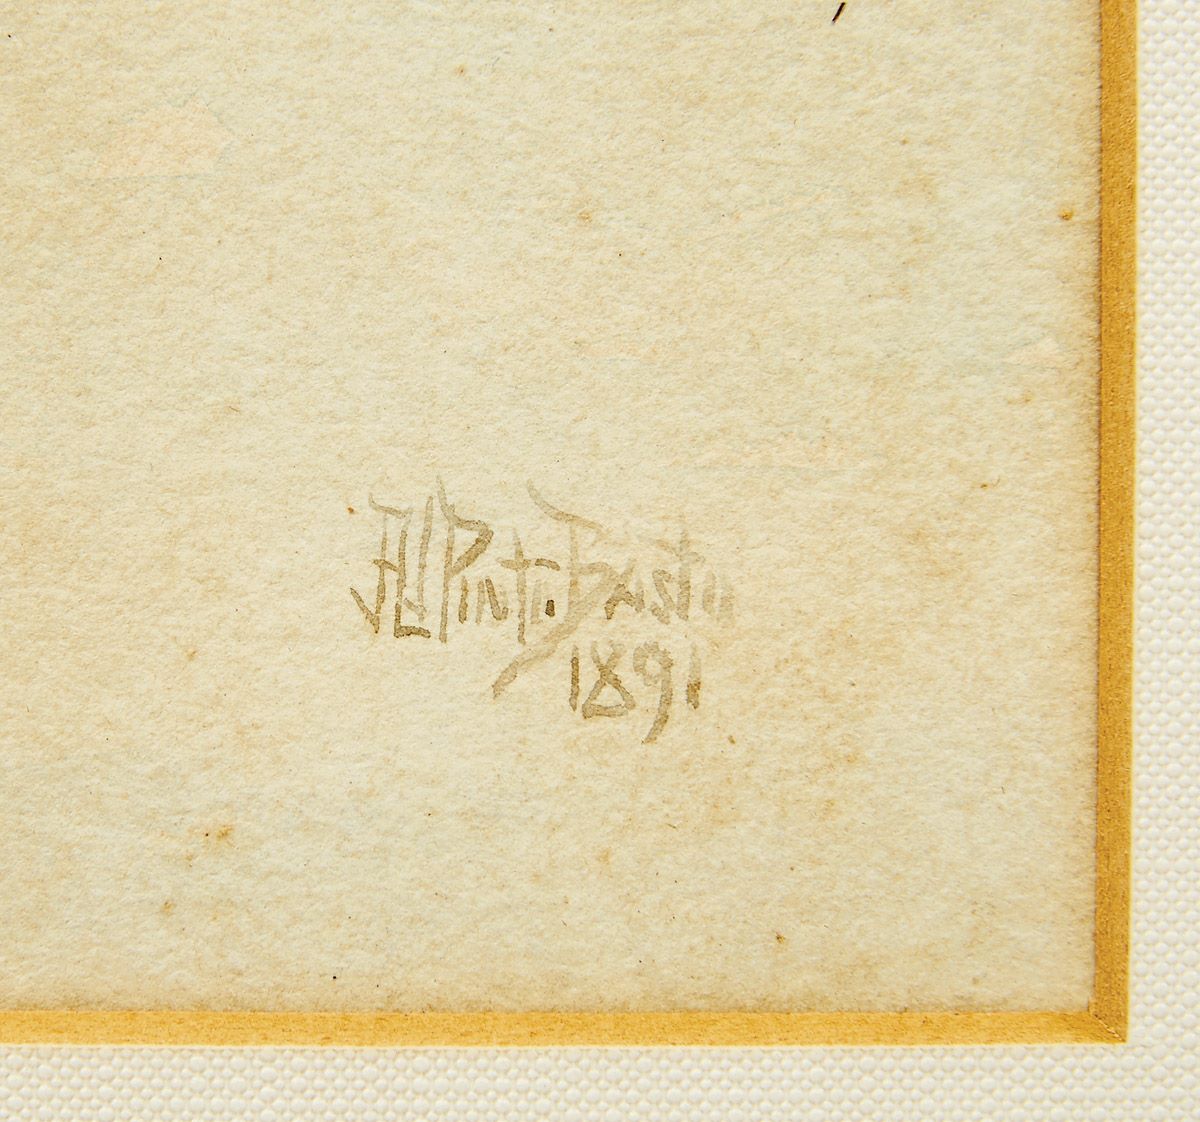 Pinto Basto
1891